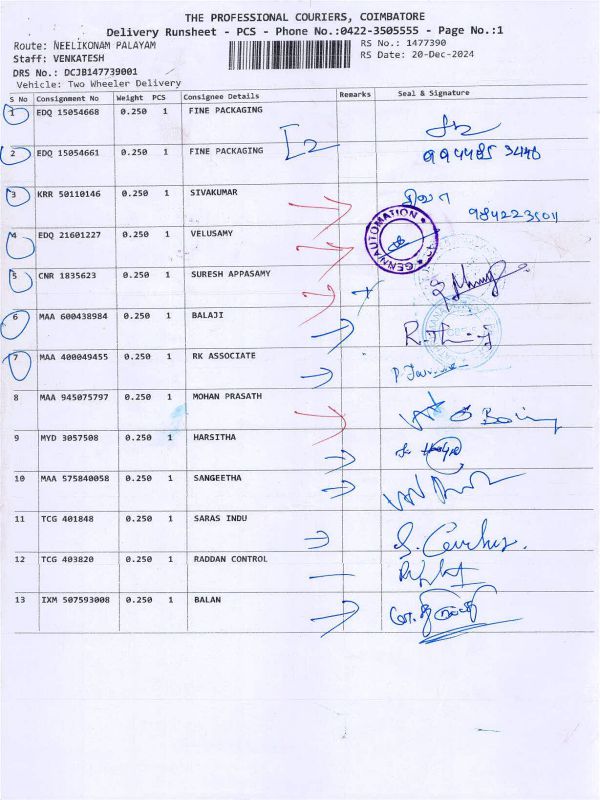 THE PROFESSIONAL COURIERS, COIMBATORE
Delivery Runsheet - PCS - Phone No.:0422-3505555 - Page No.:1
Route: NEELIKONAM PALAYAM RS No.: 1477390
Staff: VENKATESH RS Date: 20-Dec-2024
DRS No.: DCJB147739001
Vehicle: Two Wheeler Delivery
S No Consignment No Weight PCS Consignee Details Remarks Seal & Signature
1 EDQ 15054668 0.250 1 FINE PACKAGING
2 EDQ 15054661 0.250 1 FINE PACKAGING
3 KRR 50110146 0.250 1 SIVAKUMAR
4 EDQ 21601227 0.250 1 VELUSAMY GENNAUTOMATION
5 CNR 1835623 0.250 1 SURESH APPASAMY
6 MAA 600438984 0.250 1 BALAJI
7 MAA 400049455 0.250 1 RK ASSOCIATE
8 MAA 945075797 0.250 1 MOHAN PRASATH
9 MYD 3057508 0.250 1 HARSITHA
10 MAA 575840058 0.250 1 SANGEETHA
11 TCG 401848 0.250 1 SARAS INDU
12 TCG 403820 0.250 1 RADDAN CONTROL
13 IXM 507593008 0.250 1 BALAN